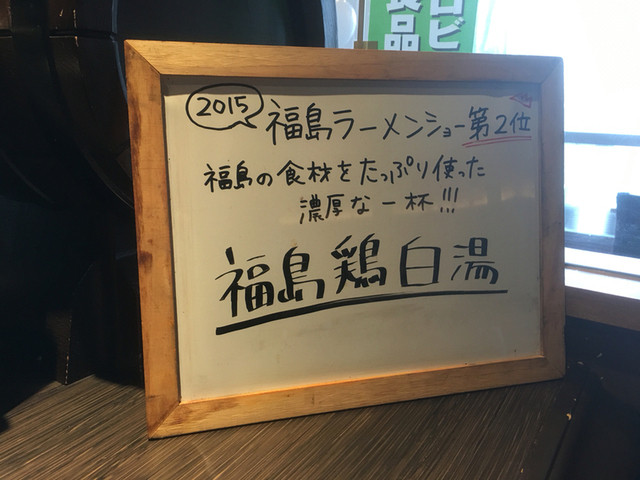 2015
福島ラーメンショー第2位
福島の食材をたっぷり使った
濃厚な一杯!!!
福島鶏白湯
ロビ
食品